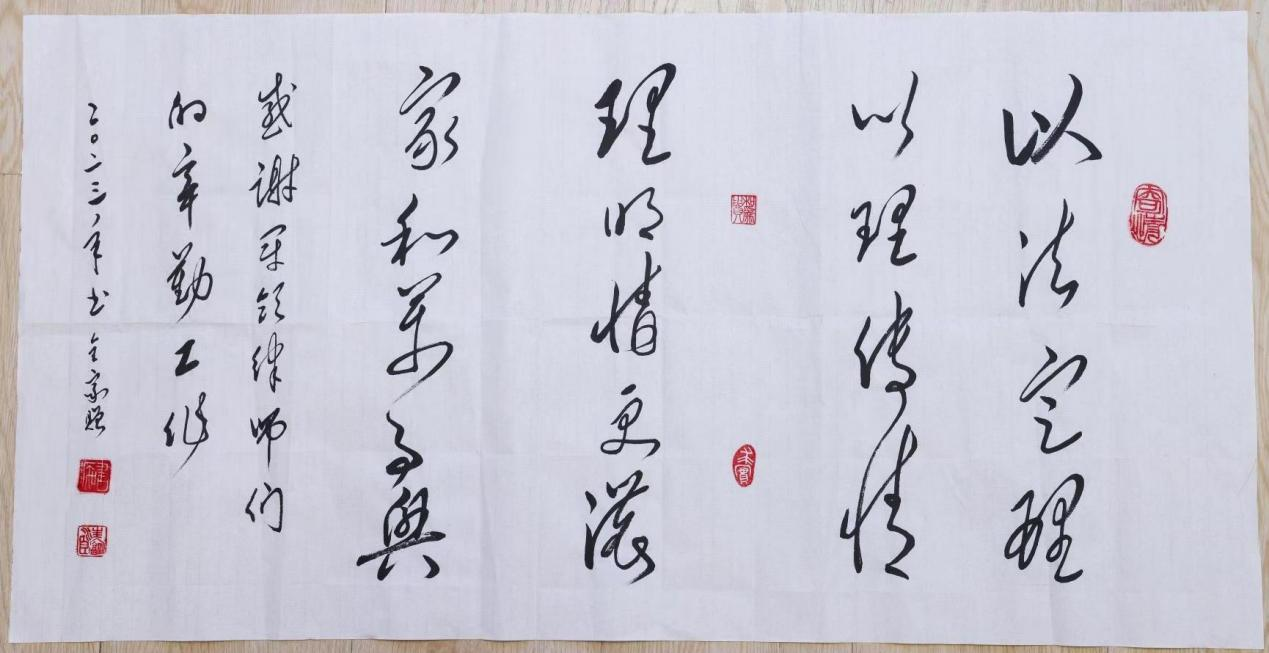 以法定理
以理传情
理明情更浓
家和万事兴
感谢军领律师们
的辛勤工作
二〇二三年书